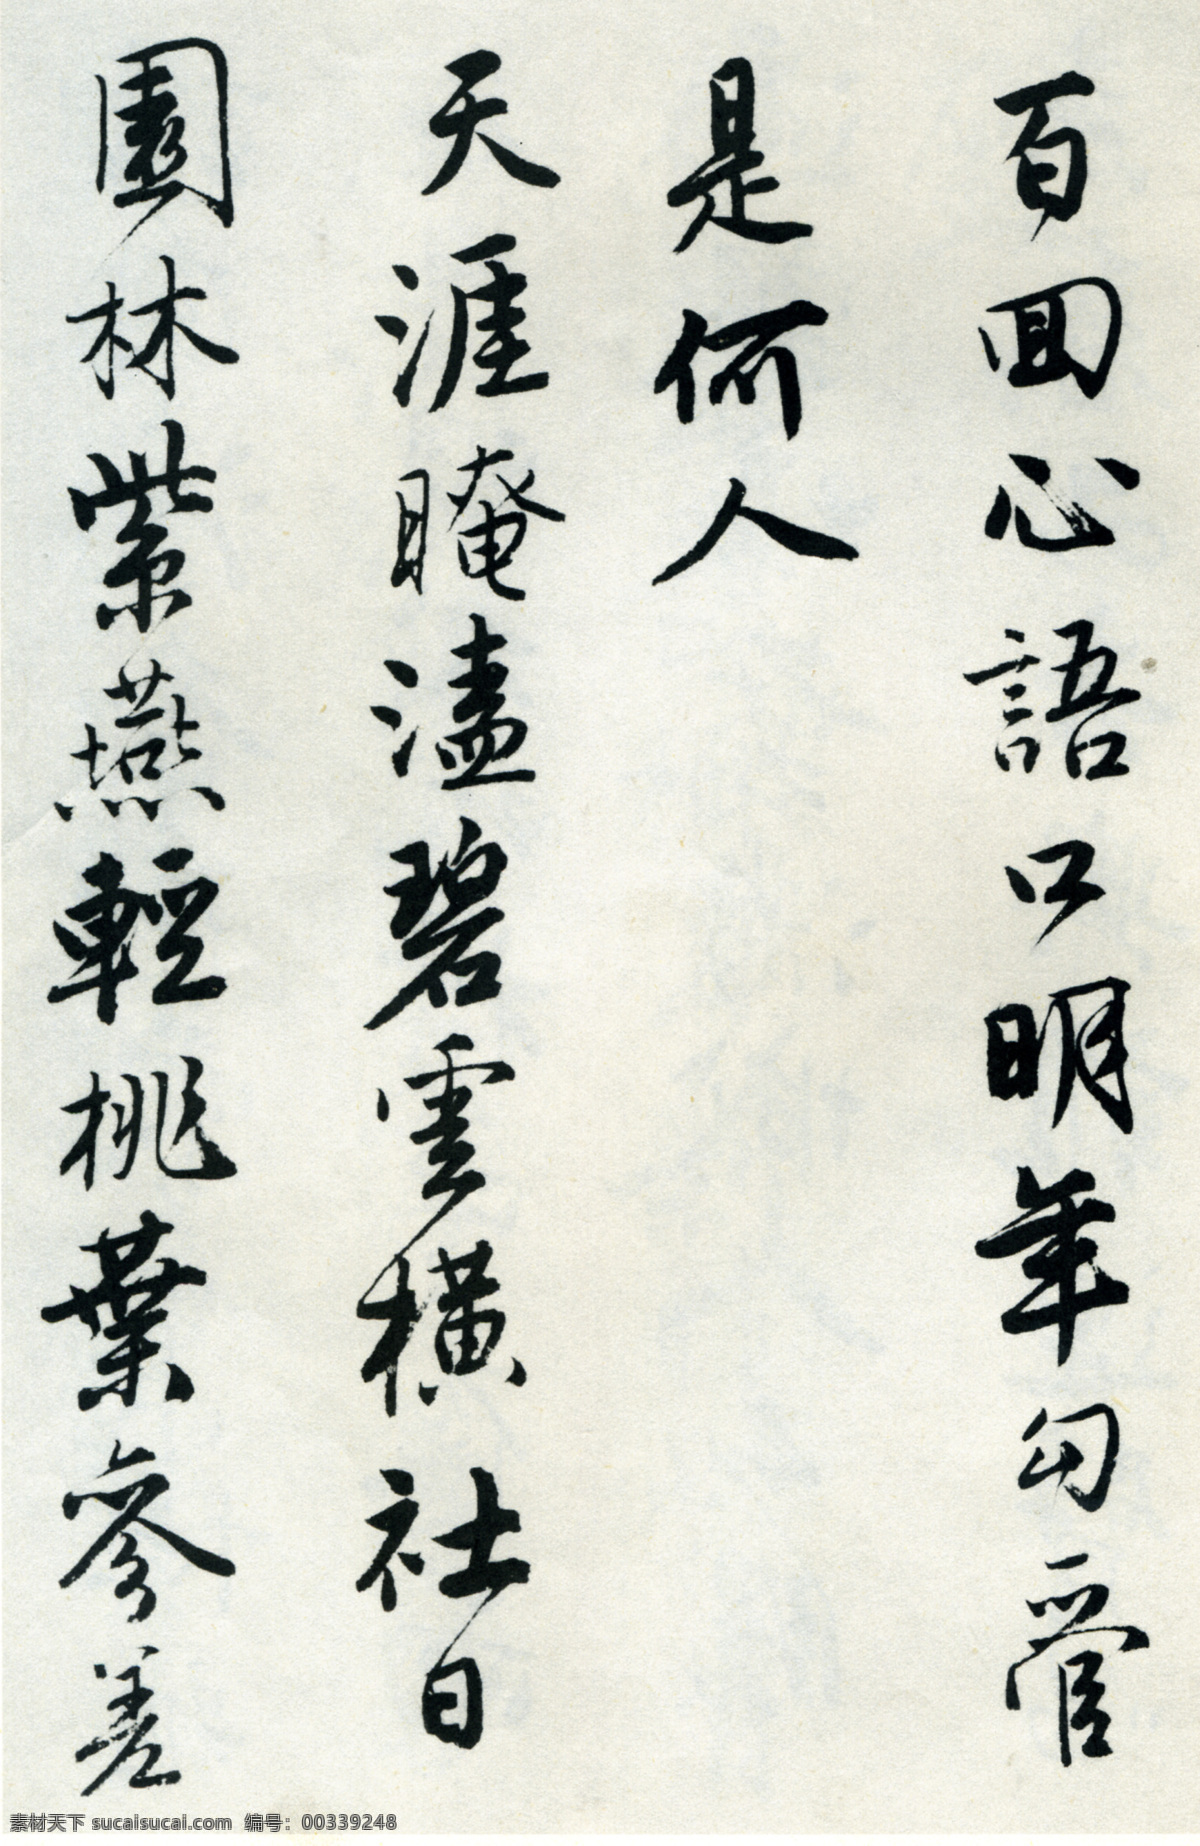 百回心語口明年勾管
是何人
天涯晻溘碧雲橫社日
園林紫燕輕桃葉參差
素材天下 sucaisucai.com 编号：00339248